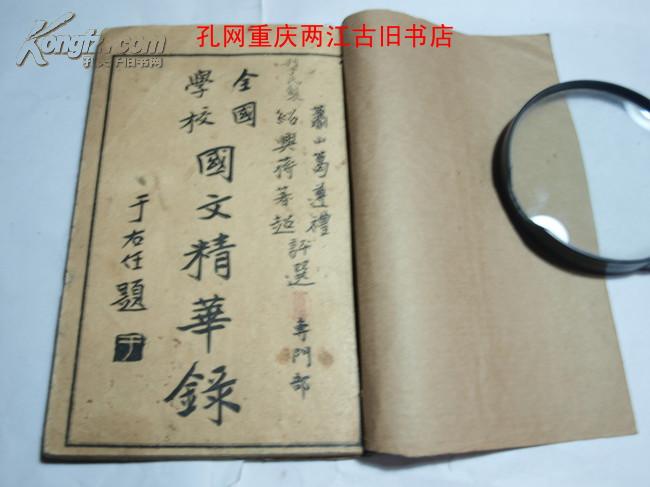 孔网重庆两江古旧书店
Kongfz.com
孔夫子旧书网
蕭山葛遵禮
紹興蔣箸超評選
專門部
全國
學校
國文精華錄
于右任題
于